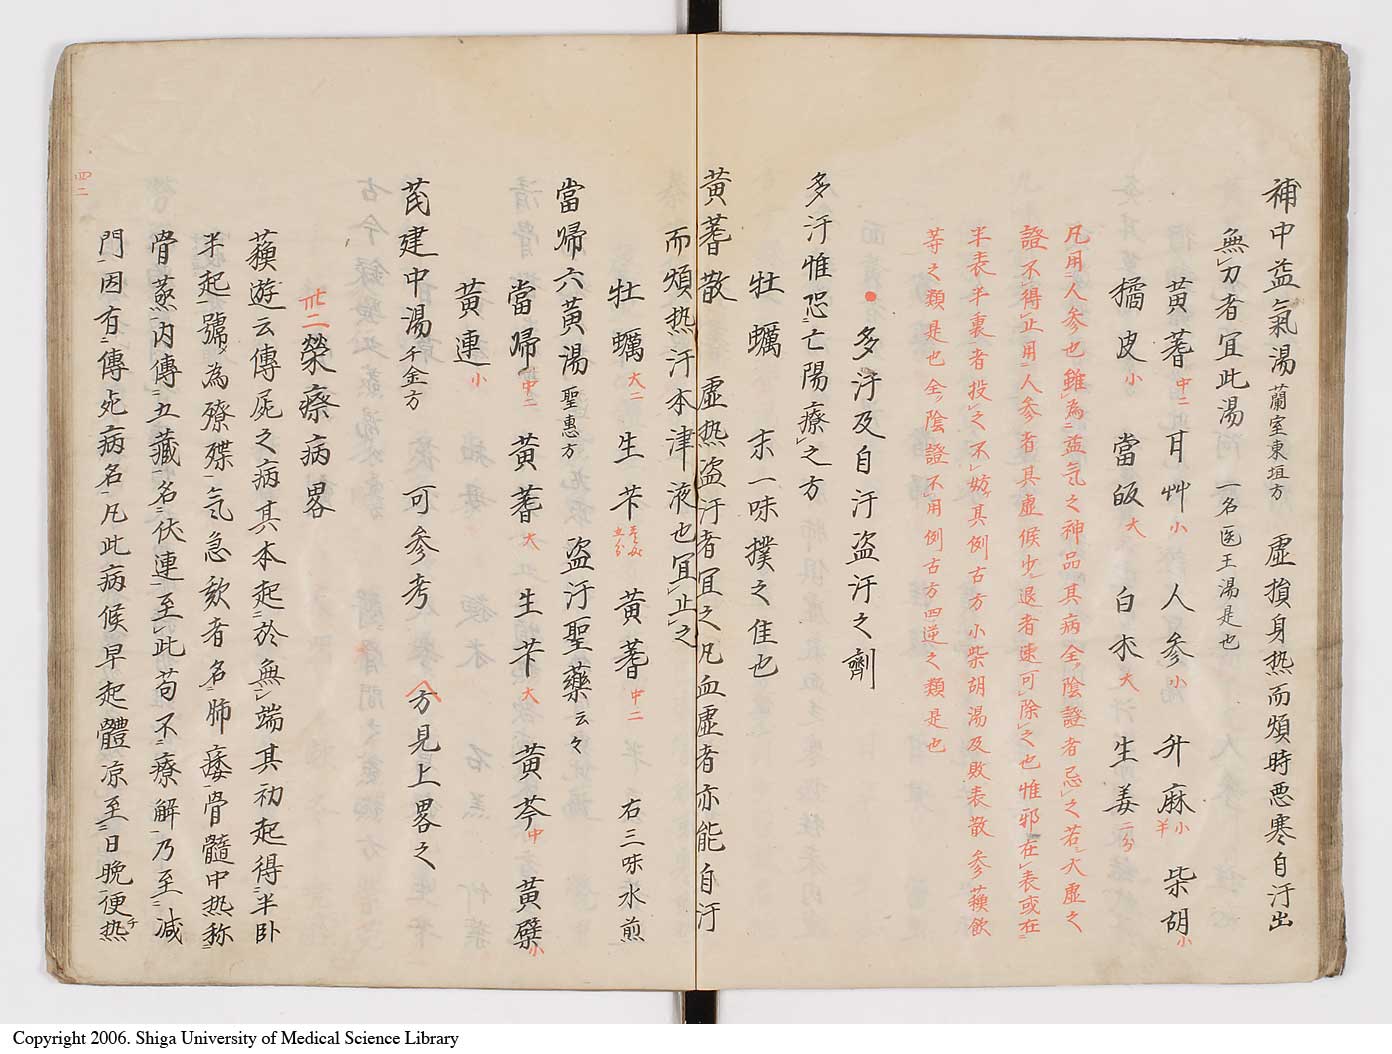 補中益氣湯 蘭室東垣方 虛損身热而煩時悪寒自汗出
無力者宜此湯 一名医王湯是也
黃蓍 中二 甘艸 小 人参 小 升麻 小半 柴胡 小
橘皮 小 當皈 大 白朮 大 生姜 二分
凡用人参也雖為益気之神品其病全陰證者忌之若大虛之
證不得止用人参者其虛候少退者速可除之也惟邪在表或在
半表半裏者投之不妨其例古方小柴胡湯及敗表散参蘓飲
等之類是也全陰證不用例古方四逆之類是也
多汗及自汗盗汗之劑
多汗惟恐亡陽療之方
牡蠣 末一味撲之佳也
黃蓍散 虛热盗汗者宜之凡血虛者亦能自汗
而煩热汗本津液也宜止之
牡蠣 大二 生芐 五分 黃蓍 中二 右三味水煎
當帰六黃湯 聖惠方 盗汗聖藥云々
當帰 中二 黃蓍 大 生芐 大 黃芩 中 黃檗 小
黃連 小
芪建中湯 千金方 可参考 方見上畧之
卅二 榮瘵病畧
蘓遊云傳屍之病其本起於無端其初起得半卧
半起號為殗殜気急欬者名肺痿骨髓中热称
骨蒸内傳五藏名伏連至此苟不療解乃至滅
門因有傳屍病名凡此病候早起體凉至日晩便热
四二
Copyright 2006. Shiga University of Medical Science Library